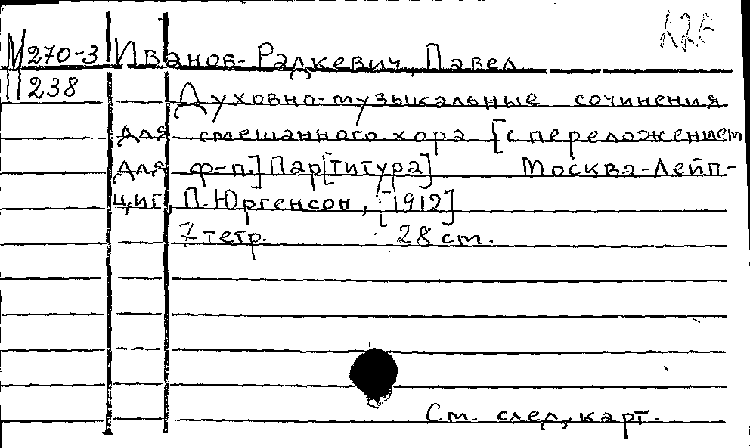 М270-3 Иванов-Радкевич, Павел
II 238
Духовно-музыкальные сочинения
для смешанного хора [с переложением
для ф-п.] Пар[титура] Москва-Лейп-
циг, П. Юргенсон, [1912]
7 тетр. 28 ст.
См. след. карт.